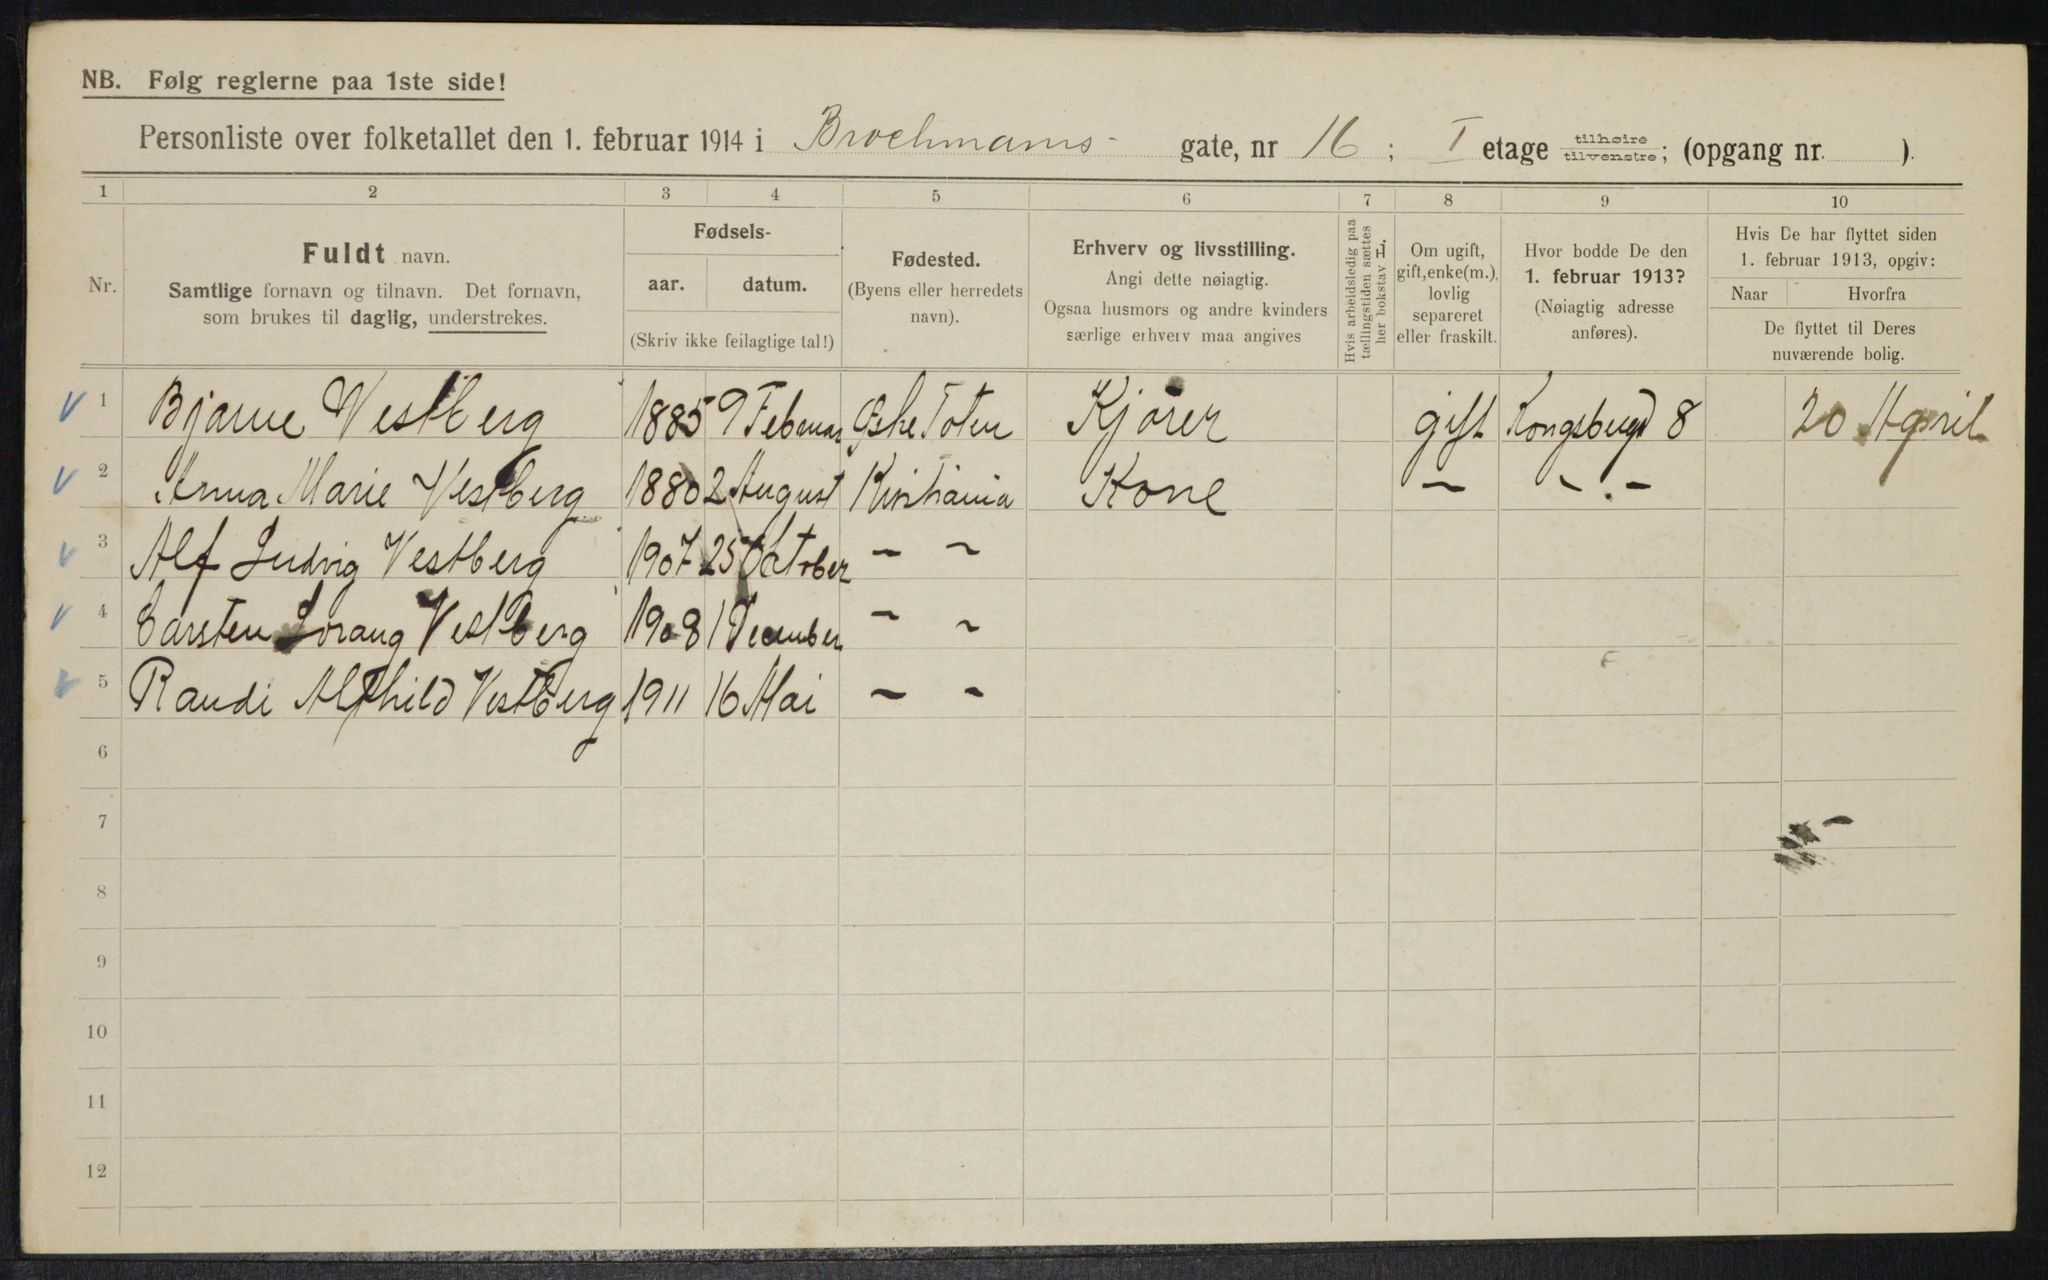 NB. Følg reglerne paa 1ste side!
Personliste over folketallet den 1. februar 1914 i Brochmanns- gate, nr 16; I etage tilhøire tilvenstre; (opgang nr. ).
1 2 3 4 5 6 7 8 9 10
Nr.
Fuldt navn.
Samtlige fornavn og tilnavn. Det fornavn,
som brukes til daglig, understrekes.
Fødsels-
aar. datum.
(Skriv ikke feilagtige tal!)
Fødested.
(Byens eller herredets
navn).
Erhverv og livsstilling.
Angi dette nøiagtig.
Ogsaa husmors og andre kvinders
særlige erhverv maa angives
Hvis arbeidsledig paa
tællingstiden sættes
her bokstav L.
Om ugift,
gift, enke(m.),
lovlig
separeret
eller fraskilt.
Hvor bodde De den
1. februar 1913?
(Nøiagtig adresse
anføres).
Hvis De har flyttet siden
1. februar 1913, opgiv:
Naar Hvorfra
De flyttet til Deres
nuværende bolig.
1 Bjarne Vestberg 1885 9 Februar Østre Toten Kjører gift Kongsbergd 8 20 April
2 Anna Marie Vestberg 1880 2 August Kristiania Kone — — . —
3 Alf Ludvig Vestberg 1907 25 October — —
4 Carsten Lorang Vestberg 1908 1 December — —
5 Randi Alfhild Vestberg 1911 16 Mai — —
6
7
8
9
10
11
12